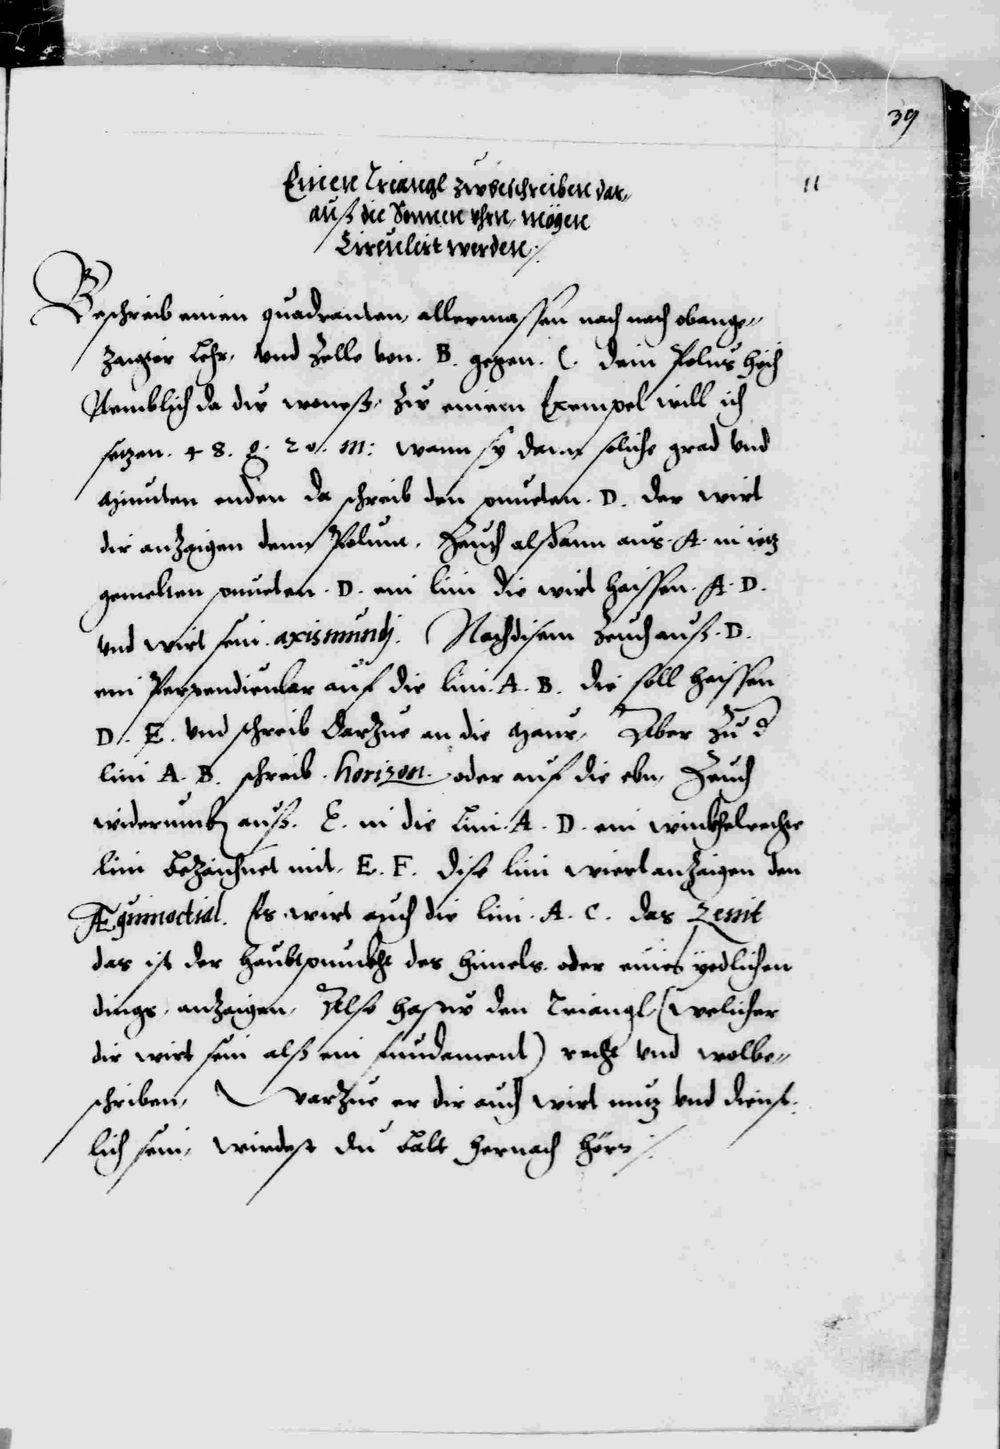 39
11
Einen Triangl zubeschreiben dar,
auß die Sonnen vhrn, mögen
Circuliert werden /.
Beschreib einen quadranten, allermassen nach nach obange„
zaigter Lehr, vnd Zelle von . B . gegen . C . dein Polus höch
Nemblich da du wonest, Zu einem Exempel will ich
setzen . 48 . g . 20 . m : wann sy dann soliche grad vnd
Minuten enden da schreib den puncten . D . der wirt
dir anzaigen denn Polum . Zeuch alßdann aus . A . in ietz
gemelten puncten . D . ein lini die wirt haissen . A . D .
vnd wirt sein . axis mundj . Nachdisem Zeuch auß . D .
ein Perpendicular auf die lini . A . B . die soll haissen
D . E . vnd schreib darzue an die Maur, Aber zu d
lini A . B . schreib . horizon . oder auf die ebn, Zeuch
widerumb auß . E . in die Lini . A . D . ein winckhelrechte
lini bezaichnet mit . E . F . dise lini wiert anzaigen den
Æquinoctial . Es wirt auch die lini . A . C . das Zenit
das ist der haubtpunckht des himels oder eines yedlichen
dings, anzaigen, Also hastu den Triangl (welicher
dir wirt sein alß ein fundament) recht vnd wolbe„
schriben, warzue er dir auch wirt nutz vnd dienst„
lich sein, wirdest du balt hernach hörn /.